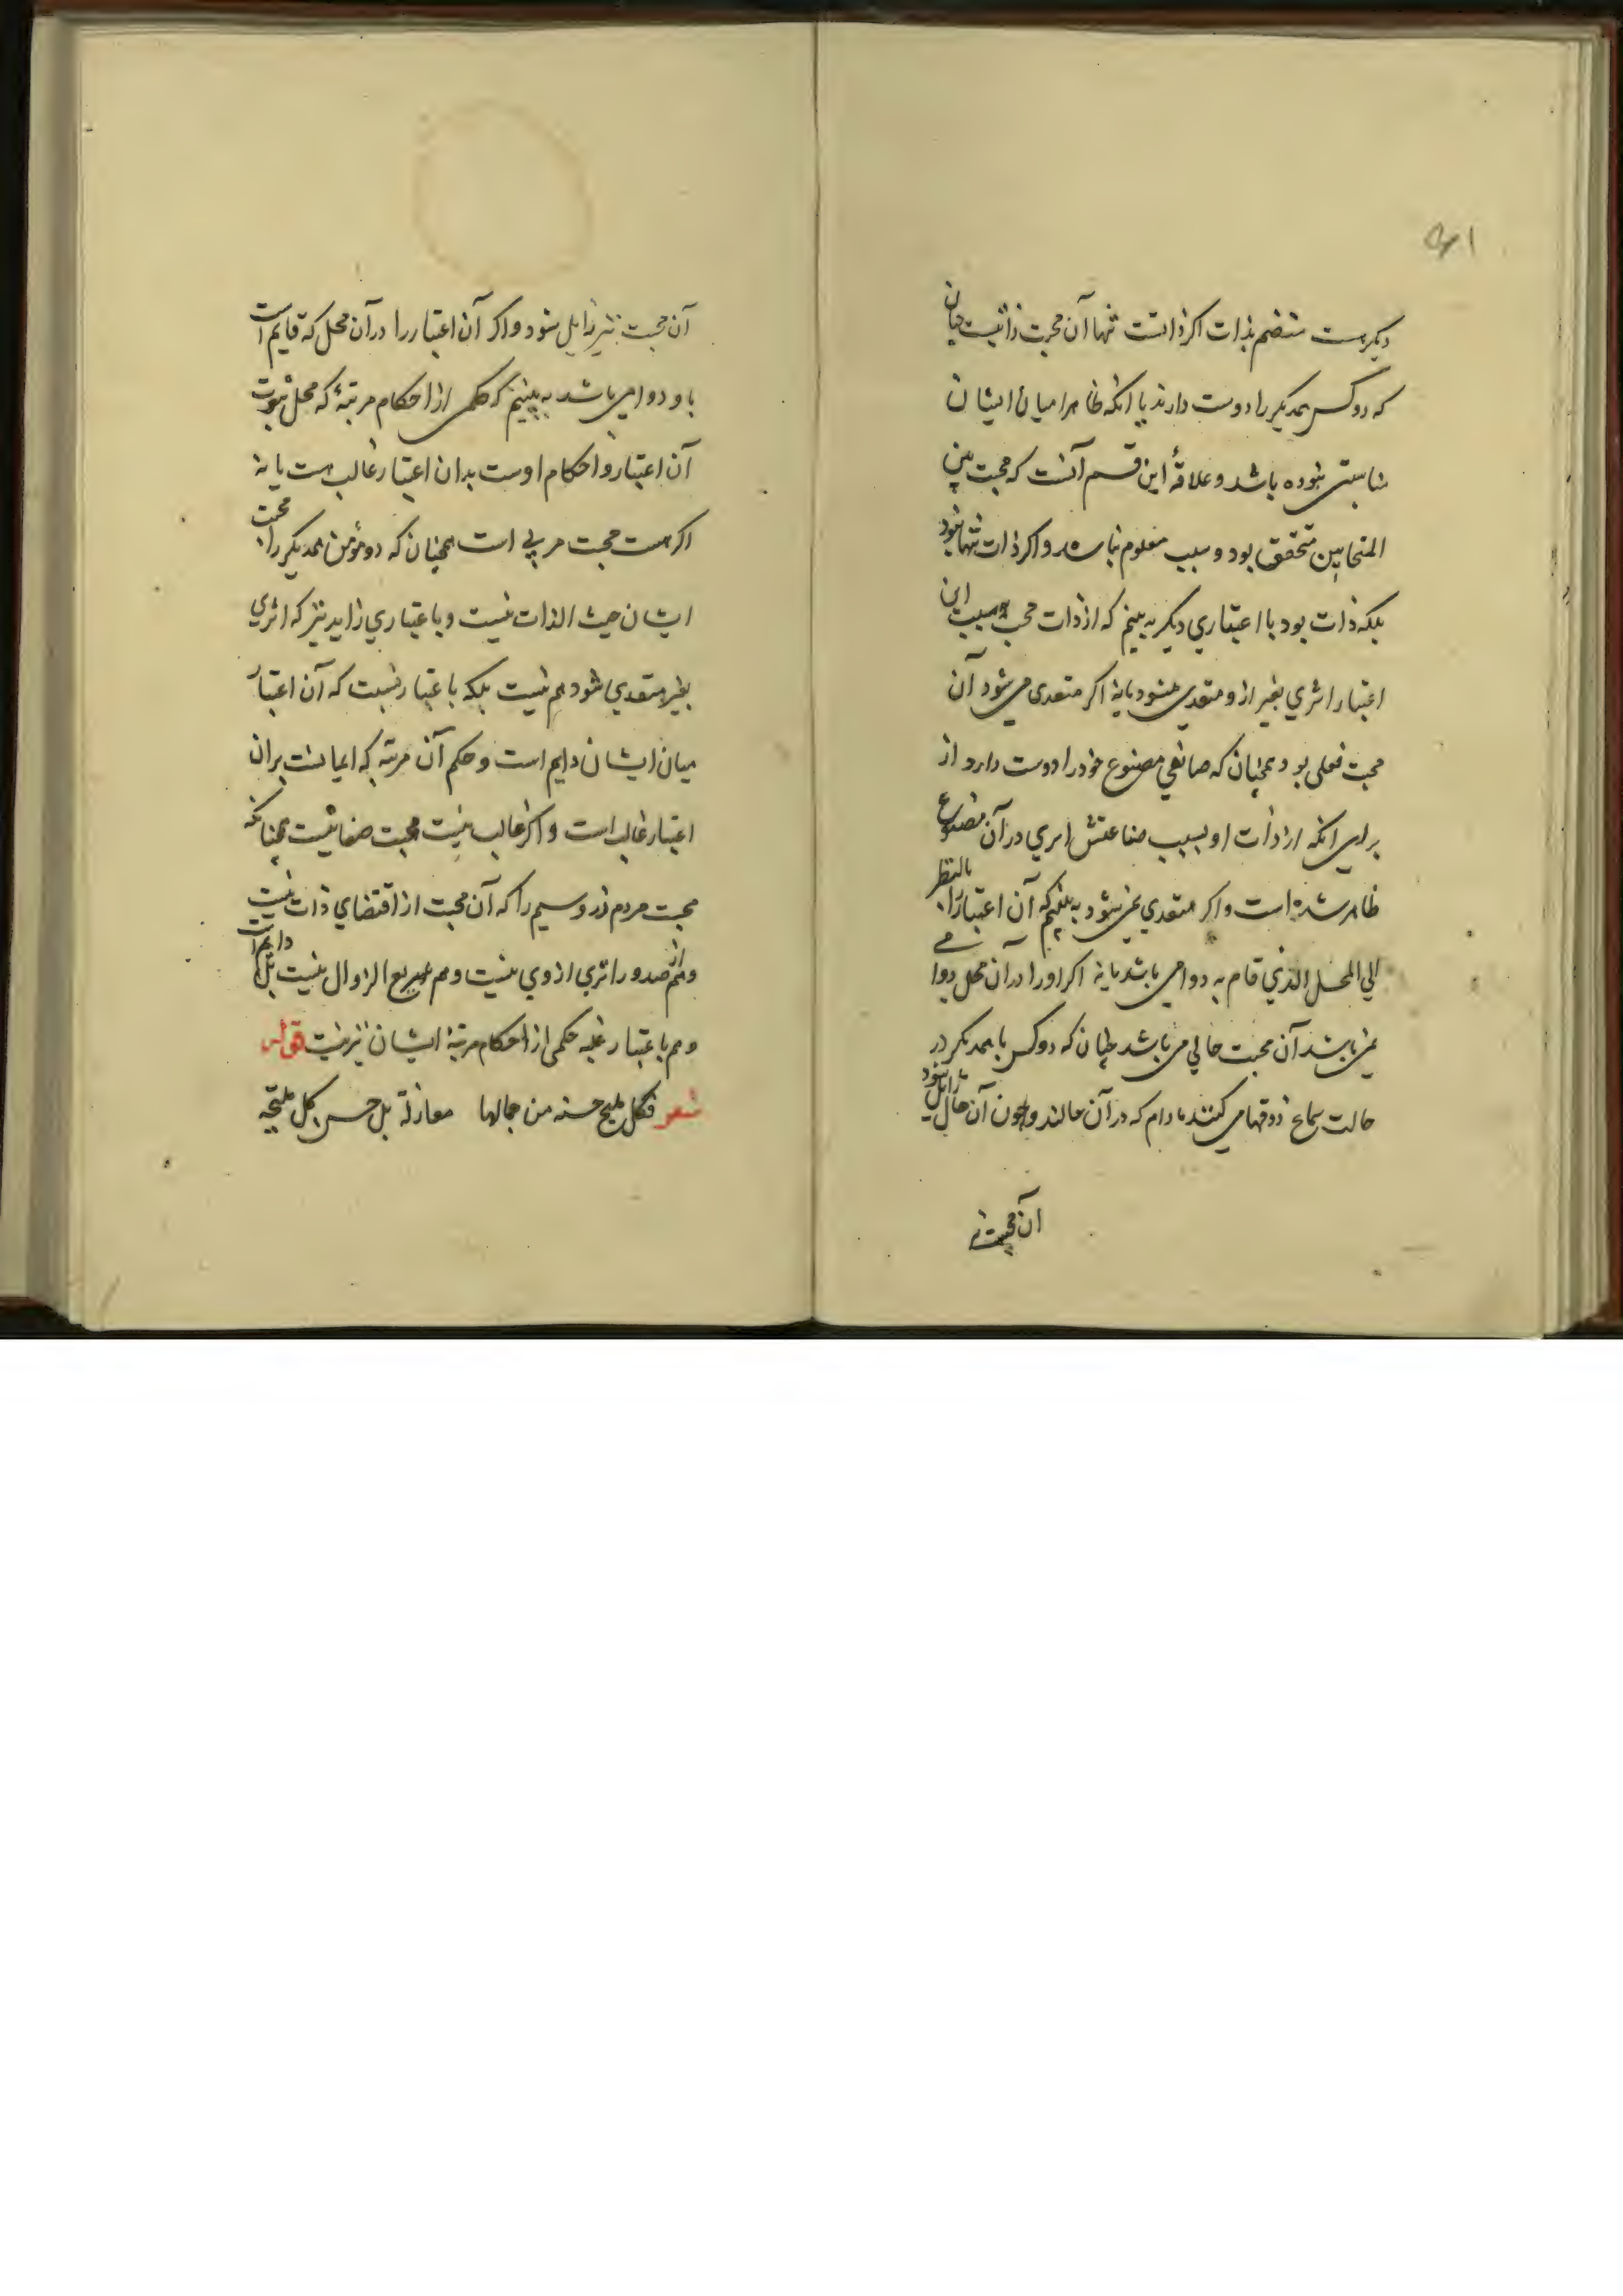 دیکر هست منضم بذات اکر ذاتست تنها آن محبت ذاتیست چنان
که دو کس همدیکر را دوست دارند با انکه ظاهرا میان ایشان
مناسبتی نبوده باشد و علاقۀ این قسم آنست که محبت بین
المتحابین متحقق بود و سبب معلوم نباشد و اکر ذات تنها نبود
بلکه ذات بود با اعتباری دیکر به بینم که از ذات محب بسبب این
اعتبار اثری بغیر ازو متعدی میشود یا نه اکر متعدی می شود آن
محبت فعلی بود همچنان که صانعی مصنوع خود را دوست دارد از
برای انکه از ذات او بسبب صناعتش امری در آن مصنوع
ظاهر شده است و اکر متعدی نمی شود به بینم که آن اعتبار را بالنظر
الی المحل الذی قام به دوامی باشد یا نه اکر او را در ان محل دوامی
نمی باشد آن محبت حالی می باشد چنان که دو کس با همدیکر در
حالت سماع ذوقها می کنند مادام که در آن حالند و چون آن حال زایل شود
آن محبت نیز
آن محبت نیز زایل شود و اکر آن اعتبار را در آن محل که قایم است
باو دوامی باشد به بینم که حکمی از احکام مرتبۀ که محل ثبوت
آن اعتبار و احکام اوست بدان اعتبار غالب هست یا نه
اکر هست محبت مرتبی است همچنان که دو مؤمن همدیکر را محبت
ایشان حیث الذات نیست و باعتباری زاید نیز که اثری
بغیر متعدی شود هم نیست بلکه باعتبار نسبت که آن اعتبار
میان ایشان دایم است و حکم آن مرتبه که ایمانست بران
اعتبار غالب است و اکر غالب نیست محبت صفاتیست همچنانکه
محبت مردم زر و سیم را که آن محبت از اقتضای ذات نیست
و هم از صدور اثری از وی نیست و هم سریع الزوال نیست بل دایم است
و هم باعتبار غلبه حکمی از احکام مرتبۀ ایشان نیز نیست قوله
شعر فکل ملیح حسنه من جمالها معار له بل حسن کل ملیحه